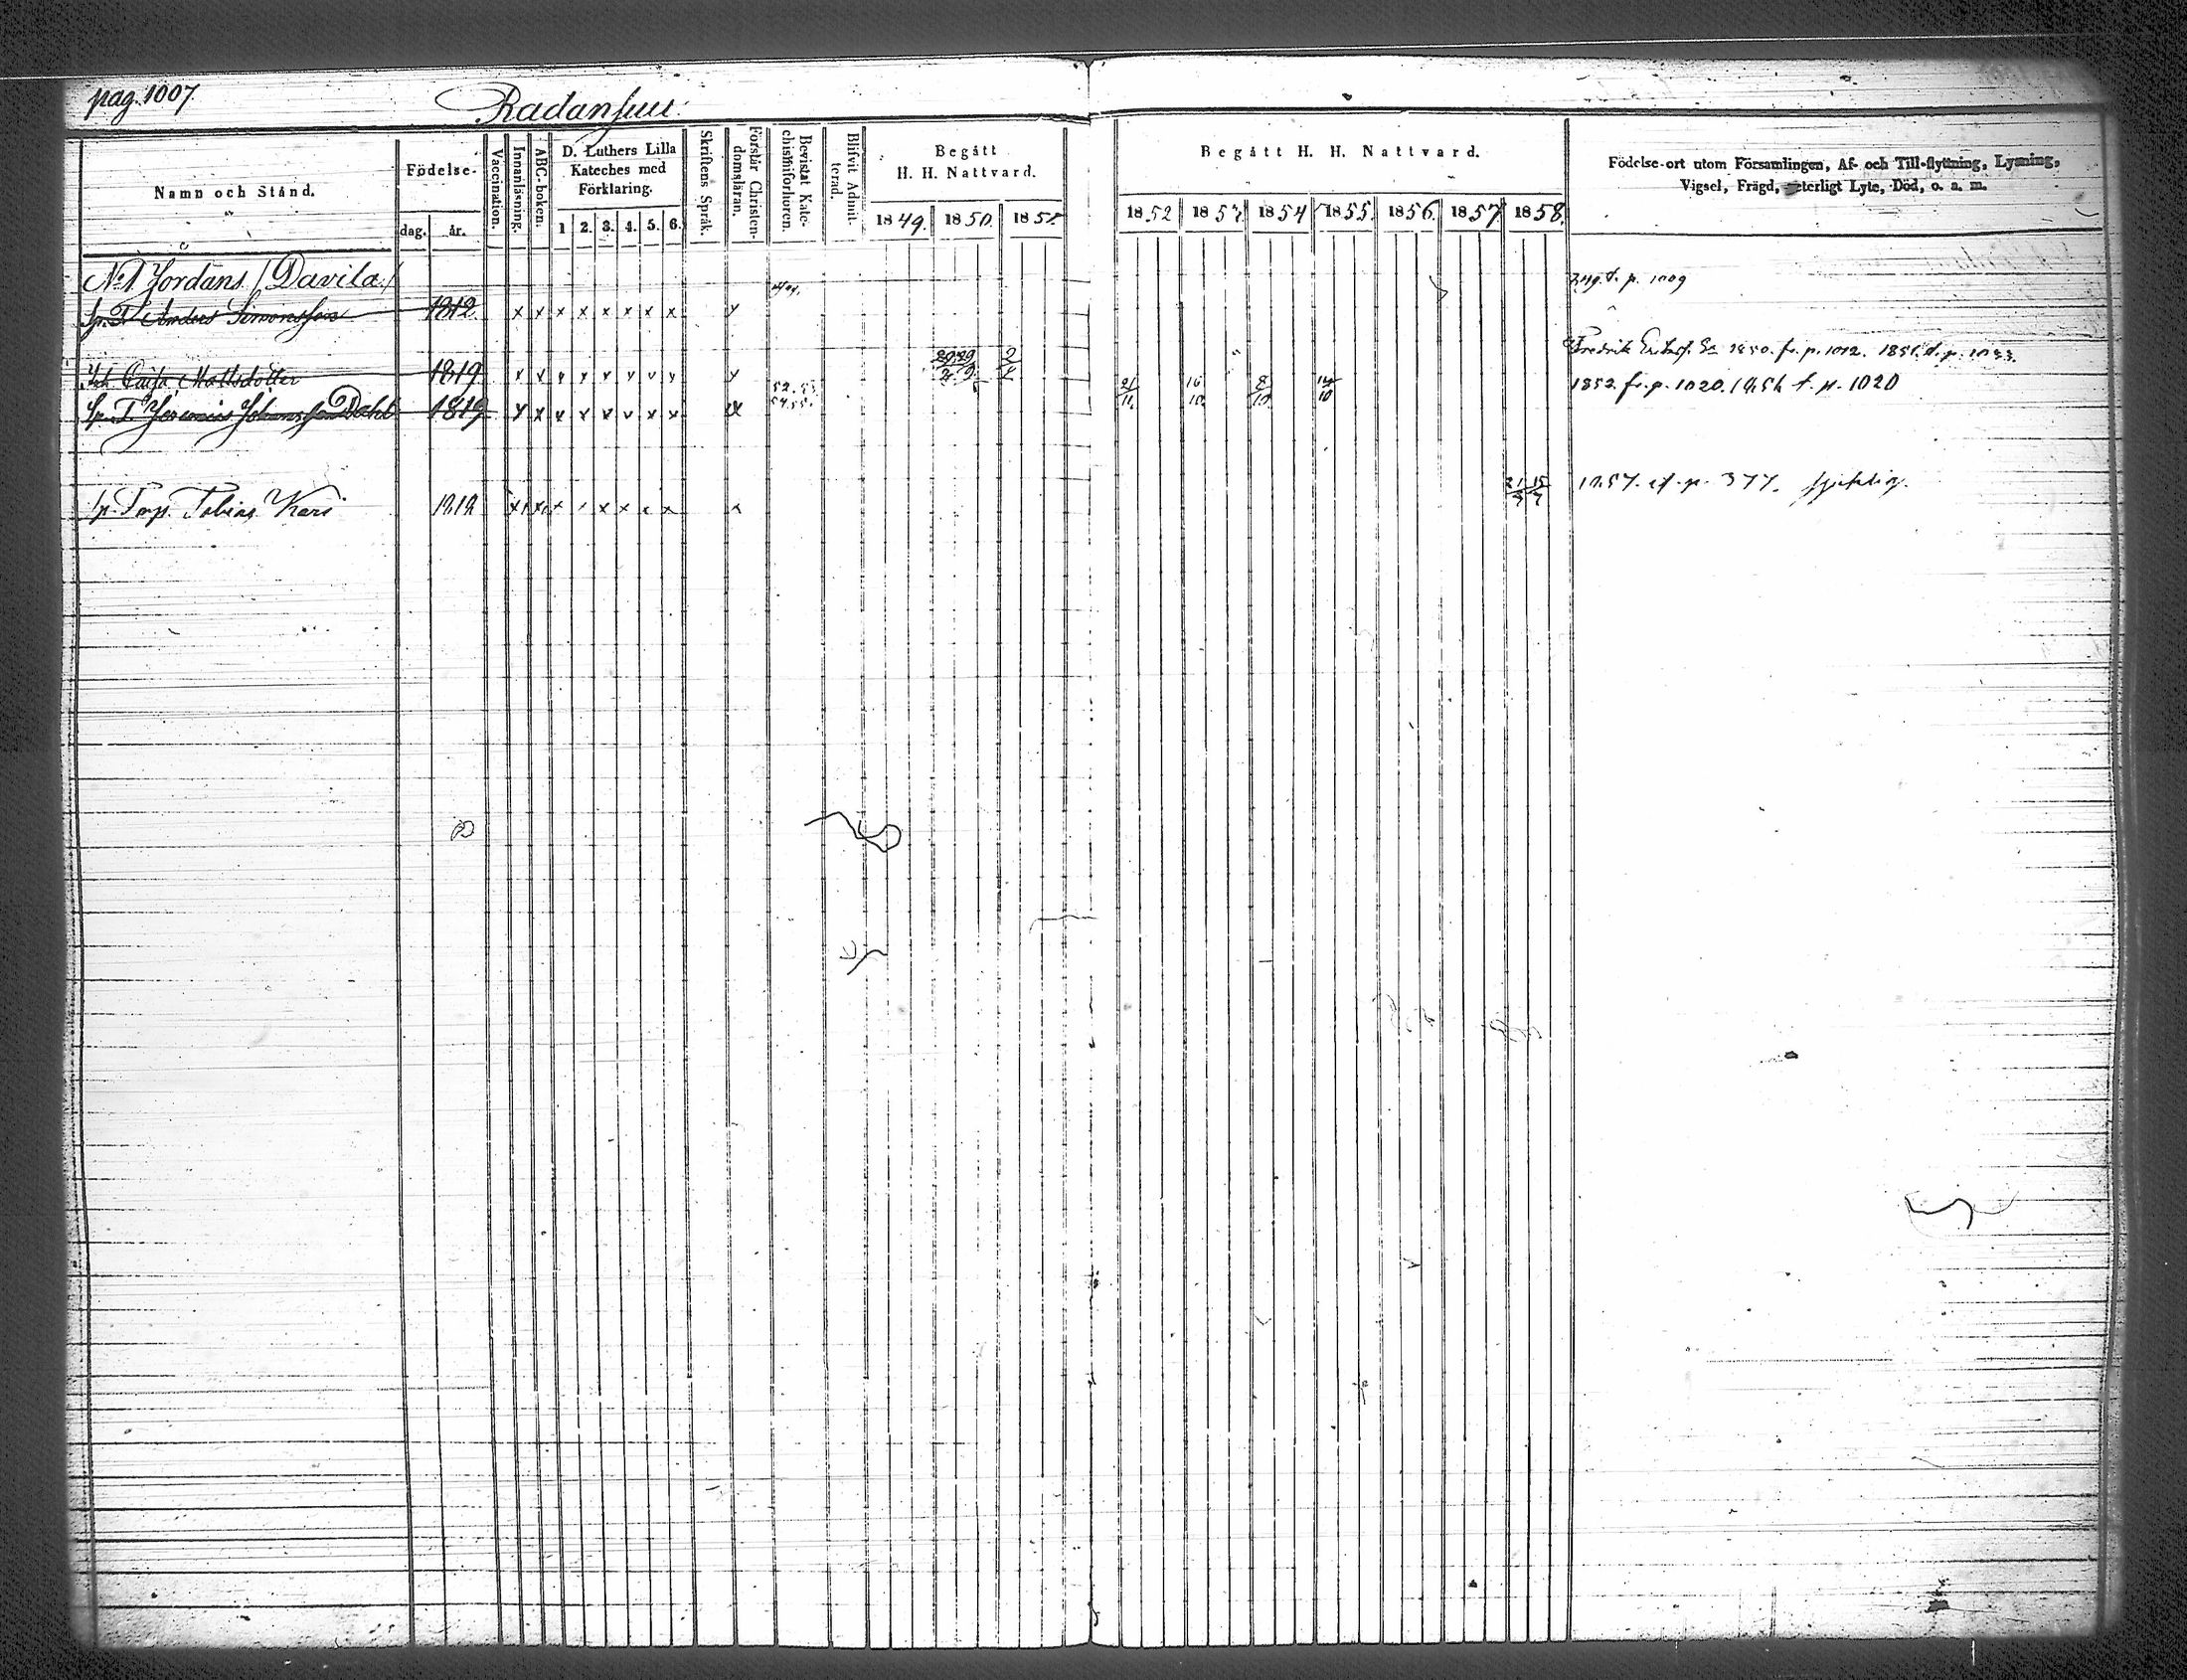 pag. 1007.
Radansuu.
Namn och Stånd.
Födelse-
dag. år.
Vaccination.
Innanläsning.
ABC-boken.
D. Luthers Lilla Kateches med Förklaring.
1 2. 3. 4. 5. 6.
Skriftens Språk.
Förstår Christendomsläran.
Bevistat Katechismiförhören.
Blifvit Admitterad.
Begått H. H. Nattvard.
1849. 1850. 1851.
Begått H. H. Nattvard.
1852 1853 1854 1855. 1856. 1857 1858.
Födelse-ort utom Församlingen, Af- och Till-flyttning, Lysning,
Vigsel, Frägd, Död, o. a. m.
No 1 Jordans / Davila /
p. 1009
Sp. T. Anders Simonsson 1812 x x x x x x x x
Fredrik 1850. fr. p. 1012. 1851. t. p.
Caisa Mattsdotter 1819
1852. fr. p. 1020. t. p. 1020
Sp. T. Jeremias Johansson Dahl 1819
52. 53.
54. 55.
21/11 8/10
Tobias Kari
21/3 15/7
1857. p. 377.